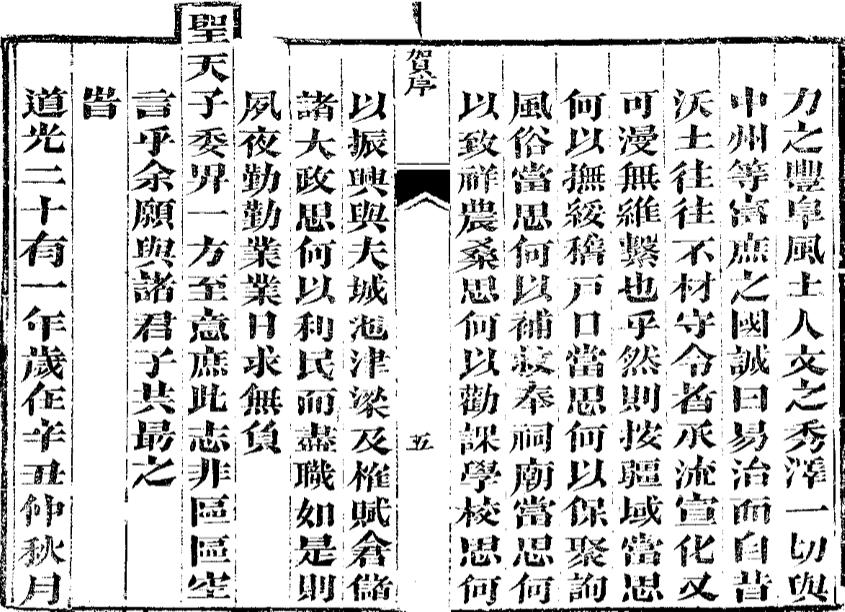 力之豐阜風土人文之秀淳一切與
中州等富庶之國誠曰易治而自昔
沃土往往不材守令者承流宣化又
可漫無維繫也乎然則按疆域當思
何以撫綏稽戸口當思何以保聚詢
風俗當思何以補救奉祠廟當思何
以致祥農桑思何以勸課學校思何
賀序
五
以振興與夫城池津梁及榷賦倉儲
諸大政思何以利民而盡職如是則
夙夜勤勤業業日求無負
聖天子委畀一方至意庶此志非區區空
言乎余願與諸君子共最之
旹
道光二十有一年歲在辛丑仲秋月